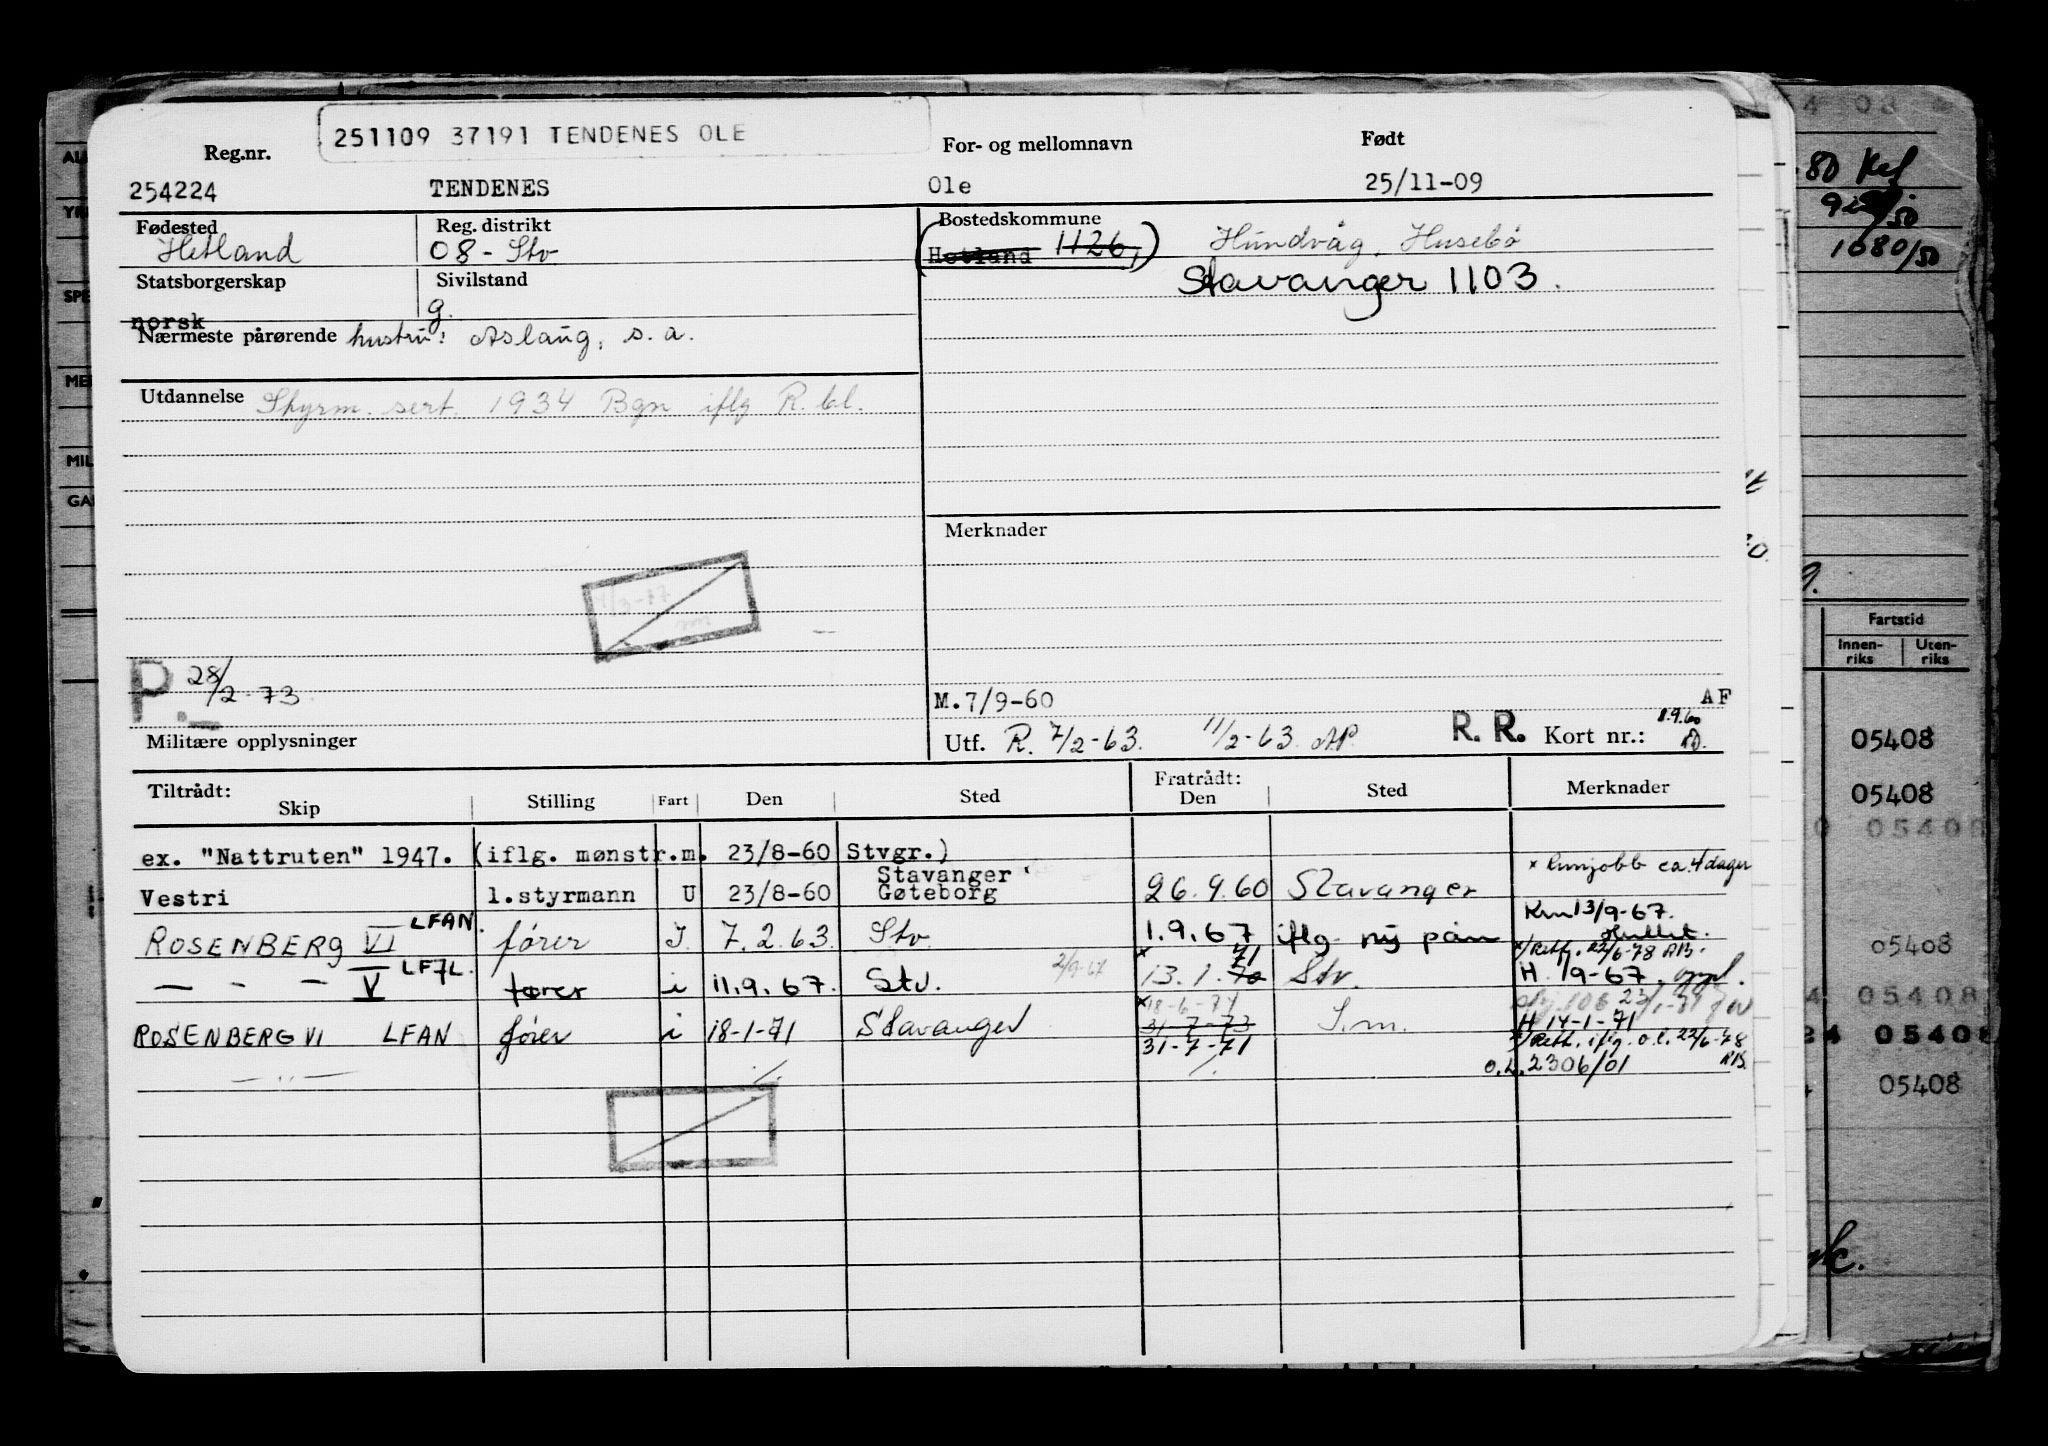 251109 37191 TENDENES OLE
Reg.nr. For- og mellomnavn Født
254224 TENDENES Ole 25/11-09
Fødested Reg. distrikt Bostedskommune
Hetland 08 - Stv Hetland 1126, Hundvåg, Husebö
Stavanger 1103.
Statsborgerskap Sivilstand
norsk g.
Nærmeste pårørende hustru: Aslaug, s. a.
Utdannelse Styrm. sert. 1934 Bgn iflg R. bl.
Merknader
P. 28/2-73
M.7/9-60 AF
Militære opplysninger
Utf. R. 7/2-63. 11/2-63. AP. R. R. Kort nr.: 8.9.60
Tiltrådt: Fratrådt:
Skip Stilling Fart Den Sted Den Sted Merknader
ex. "Nattruten" 1947. (iflg. mønstr.m. 23/8-60 Stvgr.)
x lunjobb ca. 4 dager
Vestri 1.styrmann U 23/8-60 Stavanger Gøteborg 26.9.60 Stavanger
ROSENBERG VI LFAN. fører I. 7.2.63. Stv. 1.9.67 iflg. ny påm 13/9-67.
x/Rett. 22/6-78 RB.
— - — V LF7L. fører i 11.9.67. Stv. 2/9-67 x 13.1.70 71 Stv. H. 19-67.
x 18-6-74
ROSENBERG VI LFAN fører i 18-1-71 Stavanger 31-7-73 S.m. H 14-1-71
31-7-71 x/Rett. iflg. o.l. 22/6-78 RB.
— " — ./. ./. o.l. 2306/01
80
1080/50
Fartstid
Innen-riks Uten-riks
05408
05408
05408
05408
05408
05408
05408